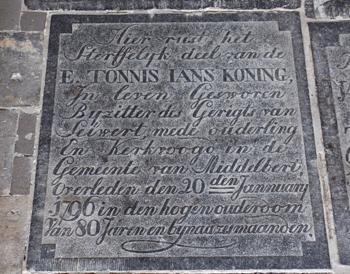 Hier rust het
Sterffelyk deel van de
E. TONNIS IANS KONING,
In leven Gesworen
Byzitter des Gerigts van
Seiwert, mede ouderling
En Kerkvoogd in de
Gemeente van Middelbert,
Overleden den 20 den Jannuary
1796 in den hogen ouderoom
Van 80 Jaren en bynaazesmaanden.